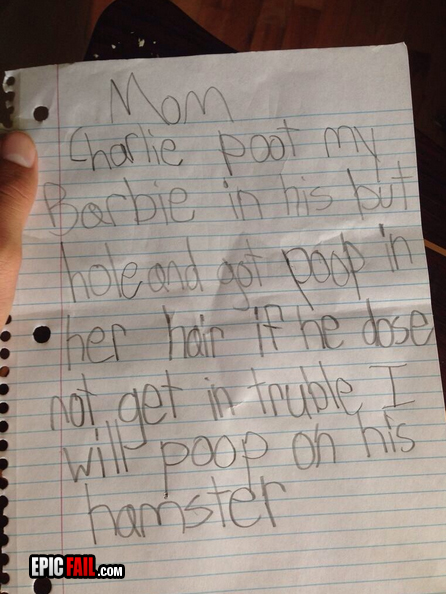 Mom
Charlie poot my
Barbie in his but
hole and got poop in
her hair if he dose
not get in truble I
will poop on his
hamster
EPICFAIL.com